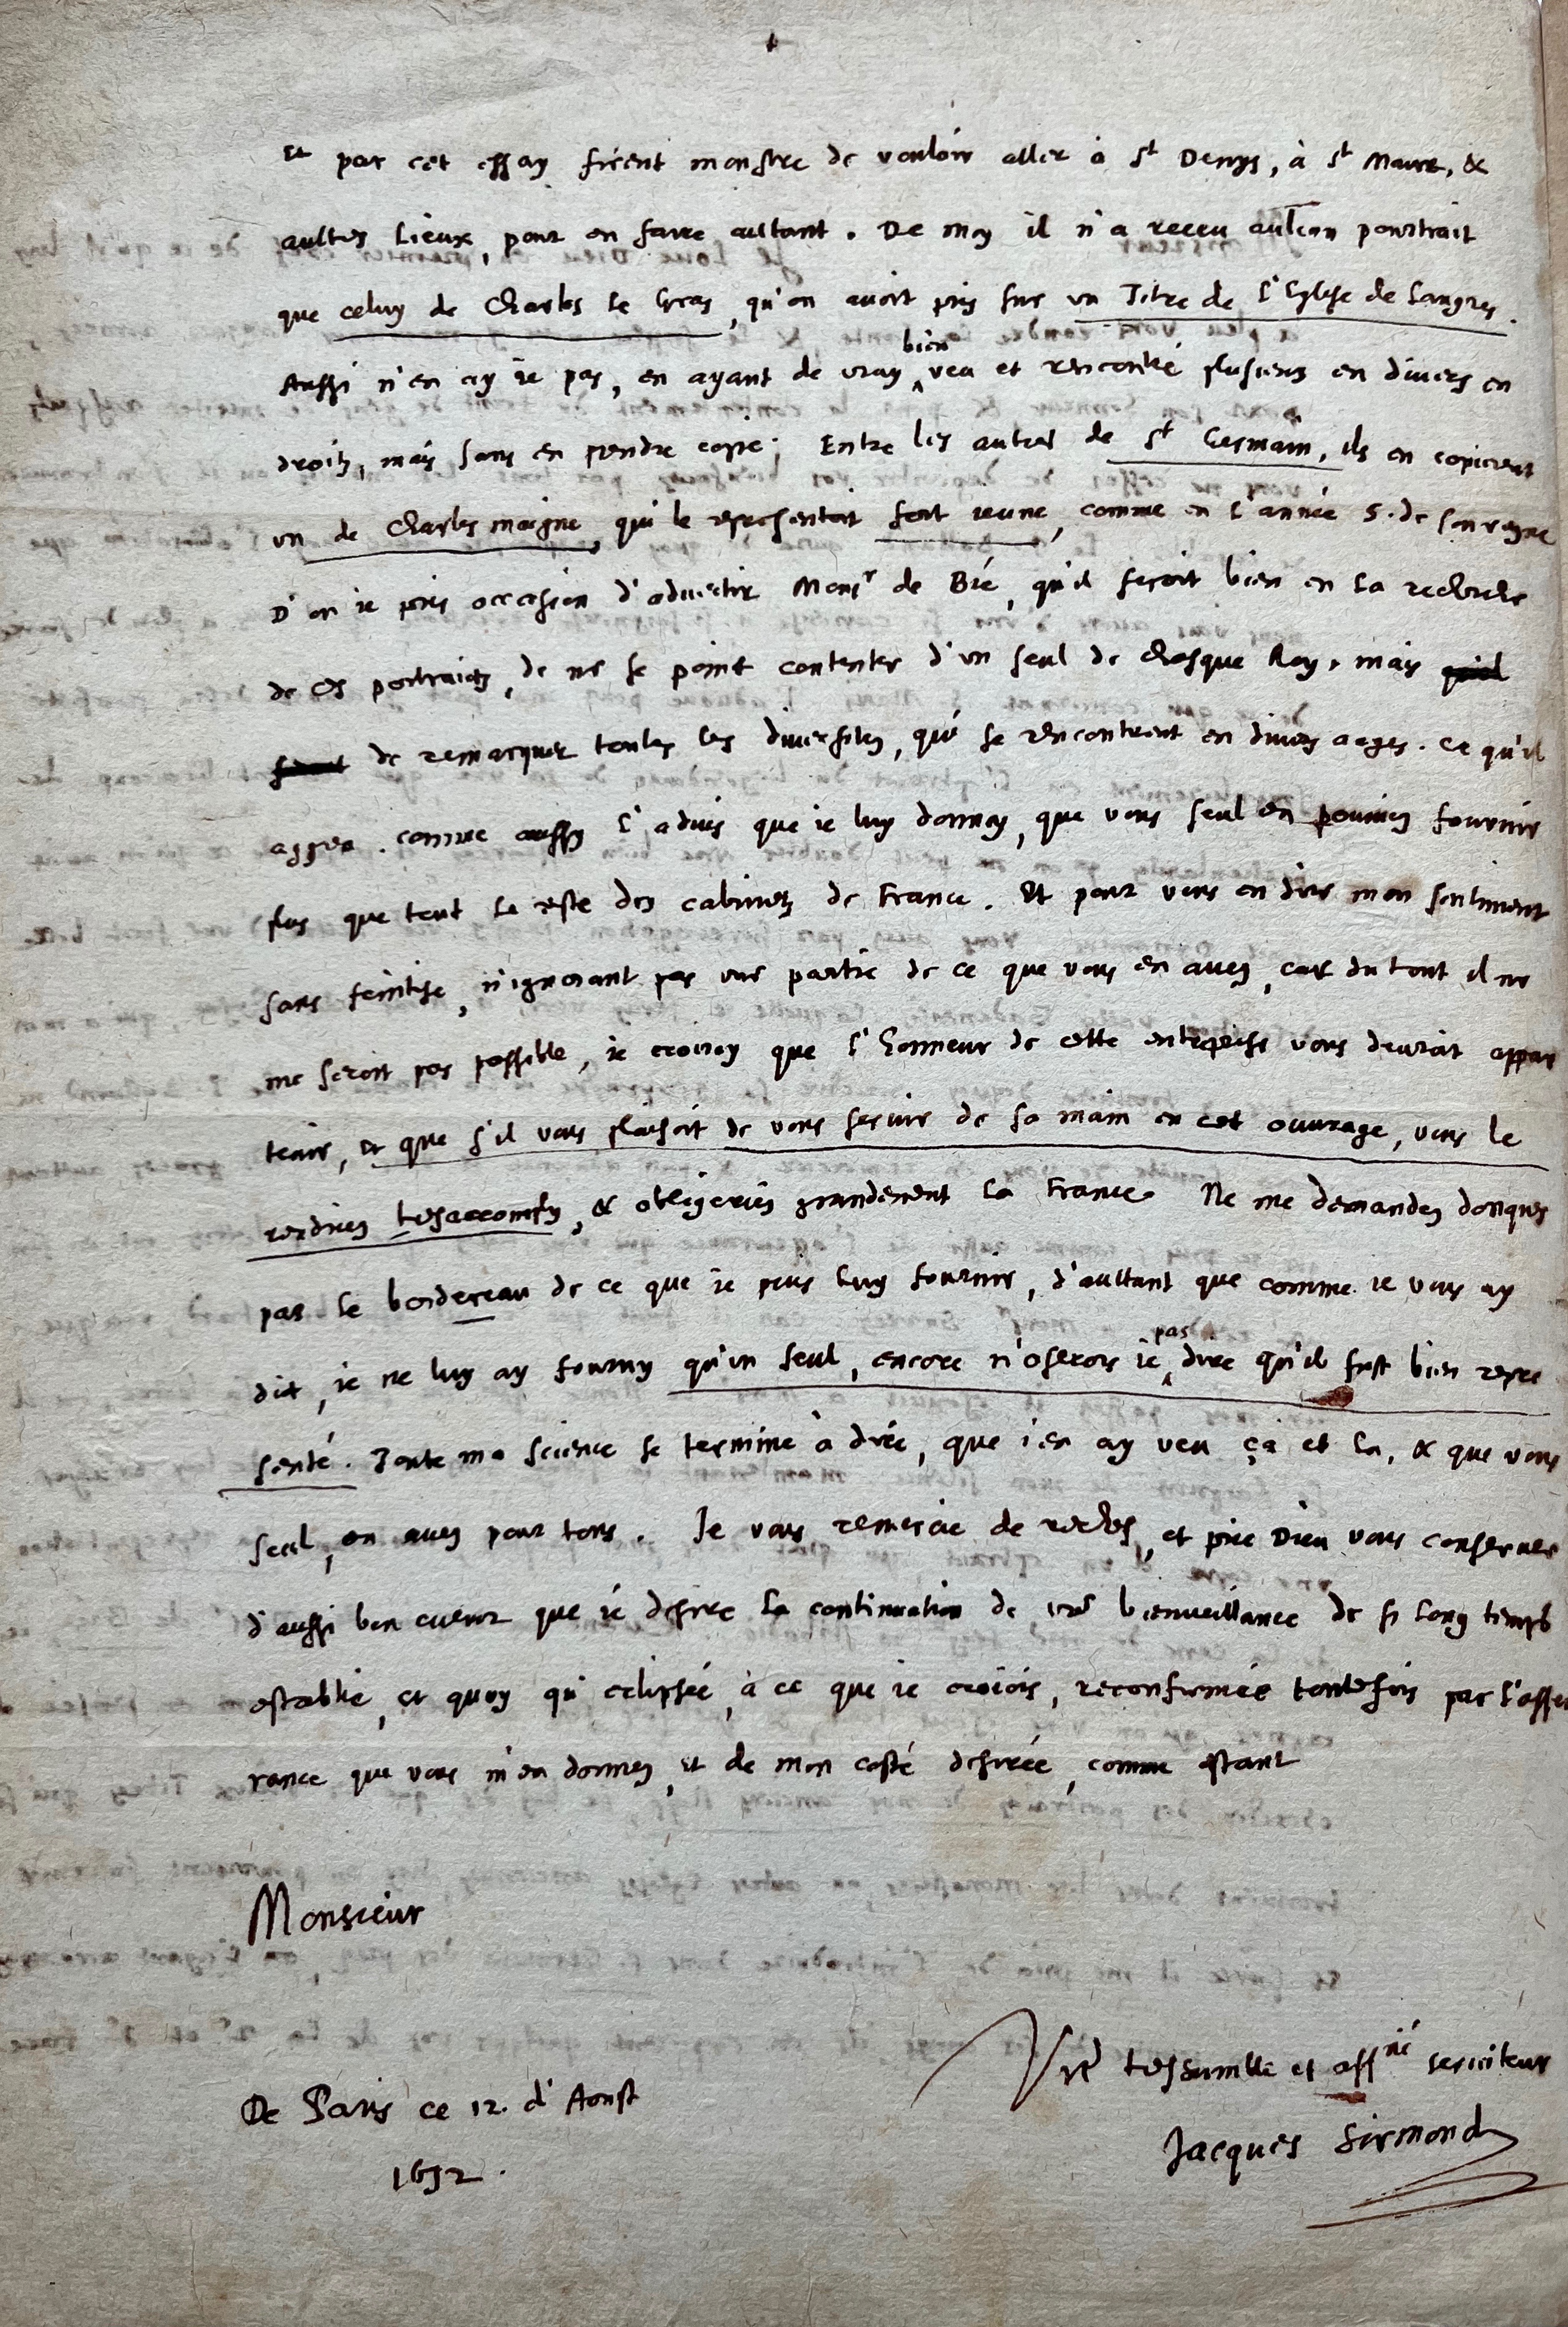 et par cet essay firent monstre de vouloir aller à St Denys, à St Maur, &
aultres lieux, pour en faire aultant. De moy il n'a receu aulcun pourtrait
que celuy de Charles le Gras, qu'on avoit pris sur un Titre de l'Eglise de Langres.
Aussi n'en ay ie pas, en ayant de vray bien veu et rencontré plusieurs en divers en
droitz, mais sans en prendre copie. Entre les autres de St Germain, ils en copierent
un de Charlesmaigne, qui le representoit fort ieune, comme en l'année 5. de son regne
D'où ie pris occasion d'advertir Monsr de Bié, qu'il feroit bien en la recherche
de ces portraictz, de ne se point contenter d'un seul de chasque Roy, mais
de remarquer toutes les diversitez, qui se rencontrent en divers aages. Ce qu'il
aggrea. comme aussy l'advis que ie luy donnay, que vous seul en pouviez fournir
plus que tout le reste des cabinetz de France. Et pour vous en dire mon sentiment
sans feintise, n'ignorant pas une partie de ce que vous en avez, car du tout il ne
me seroit pas possible, ie croiroy que l'honneur de cette entreprise vous devroit appar
tenir, et que s'il vous plaisoit de vous servir de sa main en cet ouvrage, vous le
rendriez tresaccomply, & obligeriez grandement la France. Ne me demandez doncques
pas le bordereau de ce que ie puis luy fournir, d'aultant que comme ie vous ay
dit, ie ne luy ay fourny qu'un seul, encore n'oserois ie pas dire qu'il fust bien repre
senté. Toute ma science se termine à dire, que i'en ay veu çà et là, & que vous
seul, en avez pour tous. Je vous remercie de rechef, et prie Dieu vous conserver
d'aussi bon cueur que ie desire la continuation de vre bienveillance de si long temps
establie, et quoy qu'eclipsée, à ce que ie croiois, reconfirmée toutefois par l'asseu
rance que vous m'en donnez, et de mon costé desirée, comme estant
Monsieur
Vre treshumble et affné serviteur
Jacques Sirmond
De Paris ce 12. d'Aoust
1632.